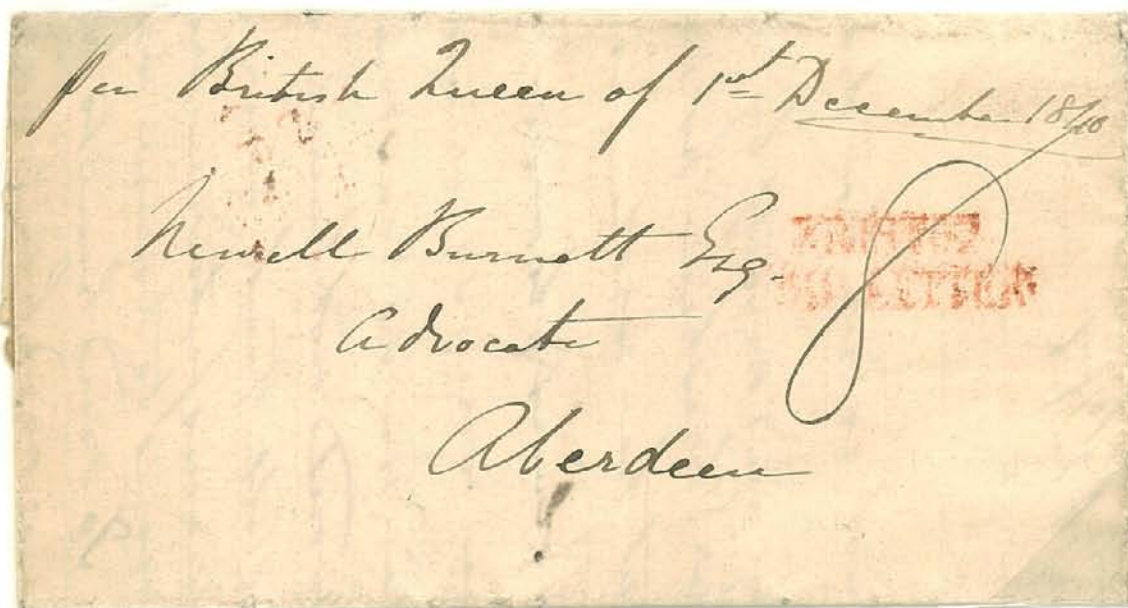 per British Queen of 1st December 1840
8
Newell Burnett Esq.
Advocate
Aberdeen